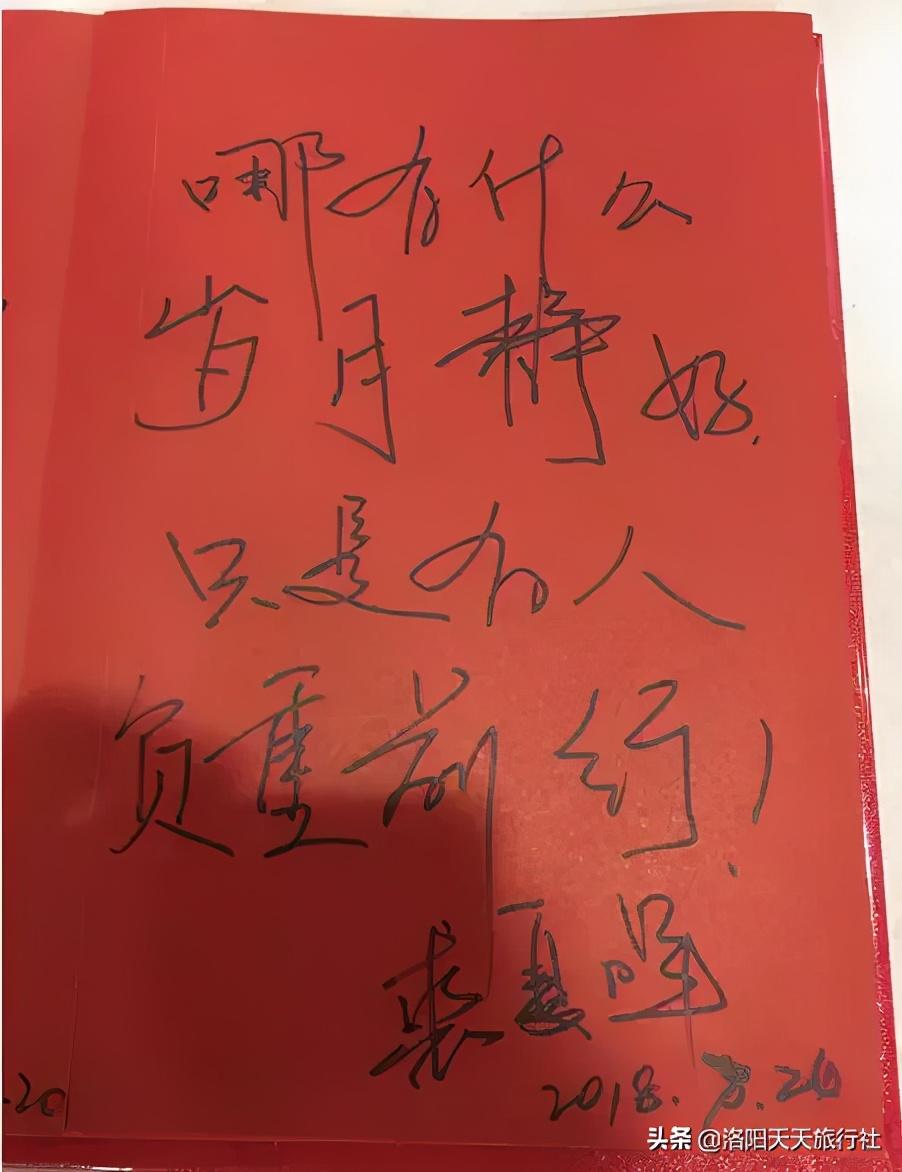 哪有什么
岁月静好.
只是有人
负重前行!
裘夏晖
2018.8.26
.20
头条 @洛阳天天旅行社